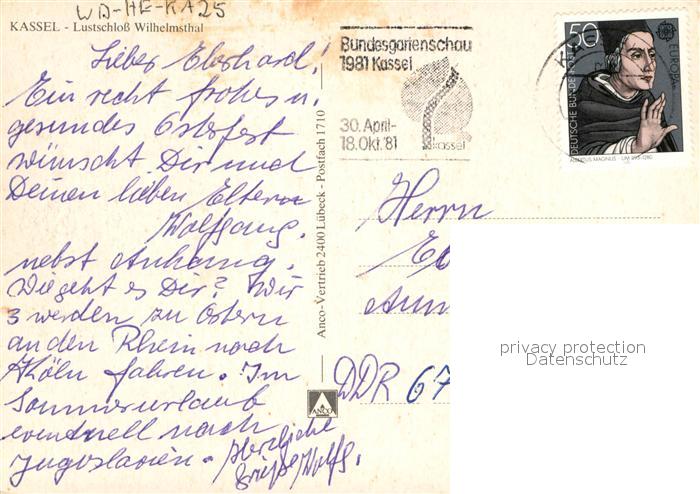 WD-HE-KA25
KASSEL - Lustschloß Wilhelmsthal
Lieber Eberhard!
Ein recht frohes u.
gesundes Osterfest
wünscht Dir und
Deinen lieben Eltern
Wolfgang
nebst Anhang.
Wie geht es Dir? Wir
3 werden zu Ostern
an den Rhein nach
Köln fahren. Im
Sommerurlaub
eventuell nach
Jugoslawien. Herzliche
Grüße Wolfg.
Anco-Vertrieb 2400 Lübeck - Postfach 1710
ANCO
Bundesgartenschau
1981 Kassel
30. April-
18. Okt. '81
kassel
50
DEUTSCHE BUNDESPOST
EUROPA
ALBERTUS MAGNUS · UM 1193-1280
Herrn
DDR 67
privacy protection
Datenschutz